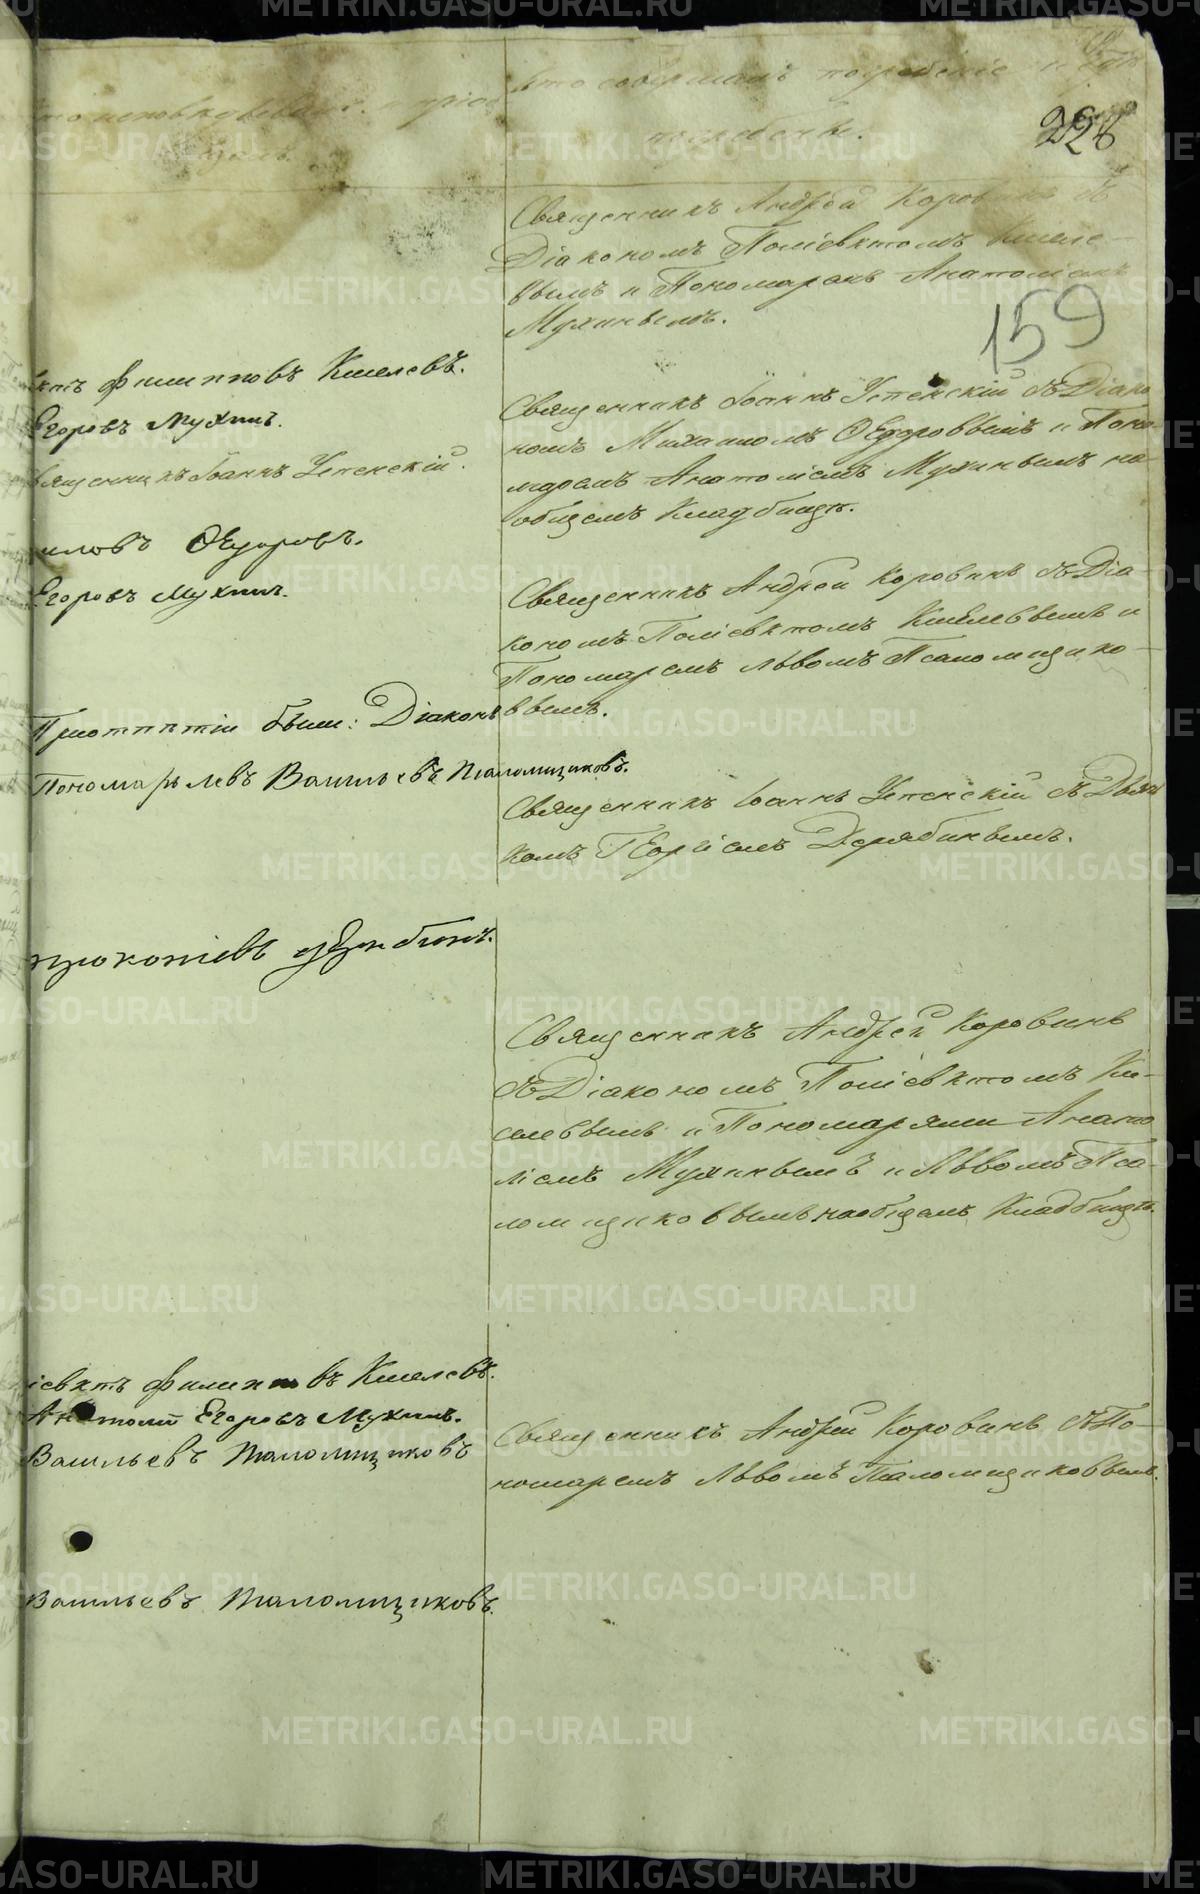 Кто совершалъ погребеніе и гдѣ
погребены.
228
159
Священникъ Андрей Коровинъ съ
Діакономъ Поліевктомъ Киселе-
вымъ и Пономаремъ Анатоліемъ
Мухинымъ.
Филипповъ Киселевъ.
Егоровъ Мухинъ.
Священникъ Іоаннъ Успенскій.
Священникъ Іоаннъ Успенскій съ Діако
номъ Михаиломъ Ѳедоровымъ и Поно
маремъ Анатоліемъ Мухинымъ на
общемъ Кладбищѣ.
иловъ Ѳедоровъ.
Егоровъ Мухинъ.
Священникъ Андрей Коровинъ съ Діа-
кономъ Поліевктомъ Киселевымъ и
Пономаремъ Львомъ Псаломщико-
вымъ.
При отпѣтіи были: Діаконъ
Пономарь Левъ Васильевъ Псаломщиковъ.
Священникъ Іоаннъ Успенскій съ Дьяч
комъ Георгіемъ Дерябинымъ.
Прокопіевъ Дерябинъ.
Священникъ Андрей Коровинъ
съ Діакономъ Поліевктомъ Ки-
селевымъ и Пономарями Анато
ліемъ Мухинымъ и Львомъ Пса-
ломщиковымъ на общемъ Кладбищѣ.
іевктъ Филипповъ Киселевъ.
Анатолій Егоровъ Мухинъ.
Васильевъ Псаломщиковъ
Священникъ Андрей Коровинъ съ По-
номаремъ Львомъ Псаломщиковымъ.
Васильевъ Псаломщиковъ.
METRIKI.GASO-URAL.RU